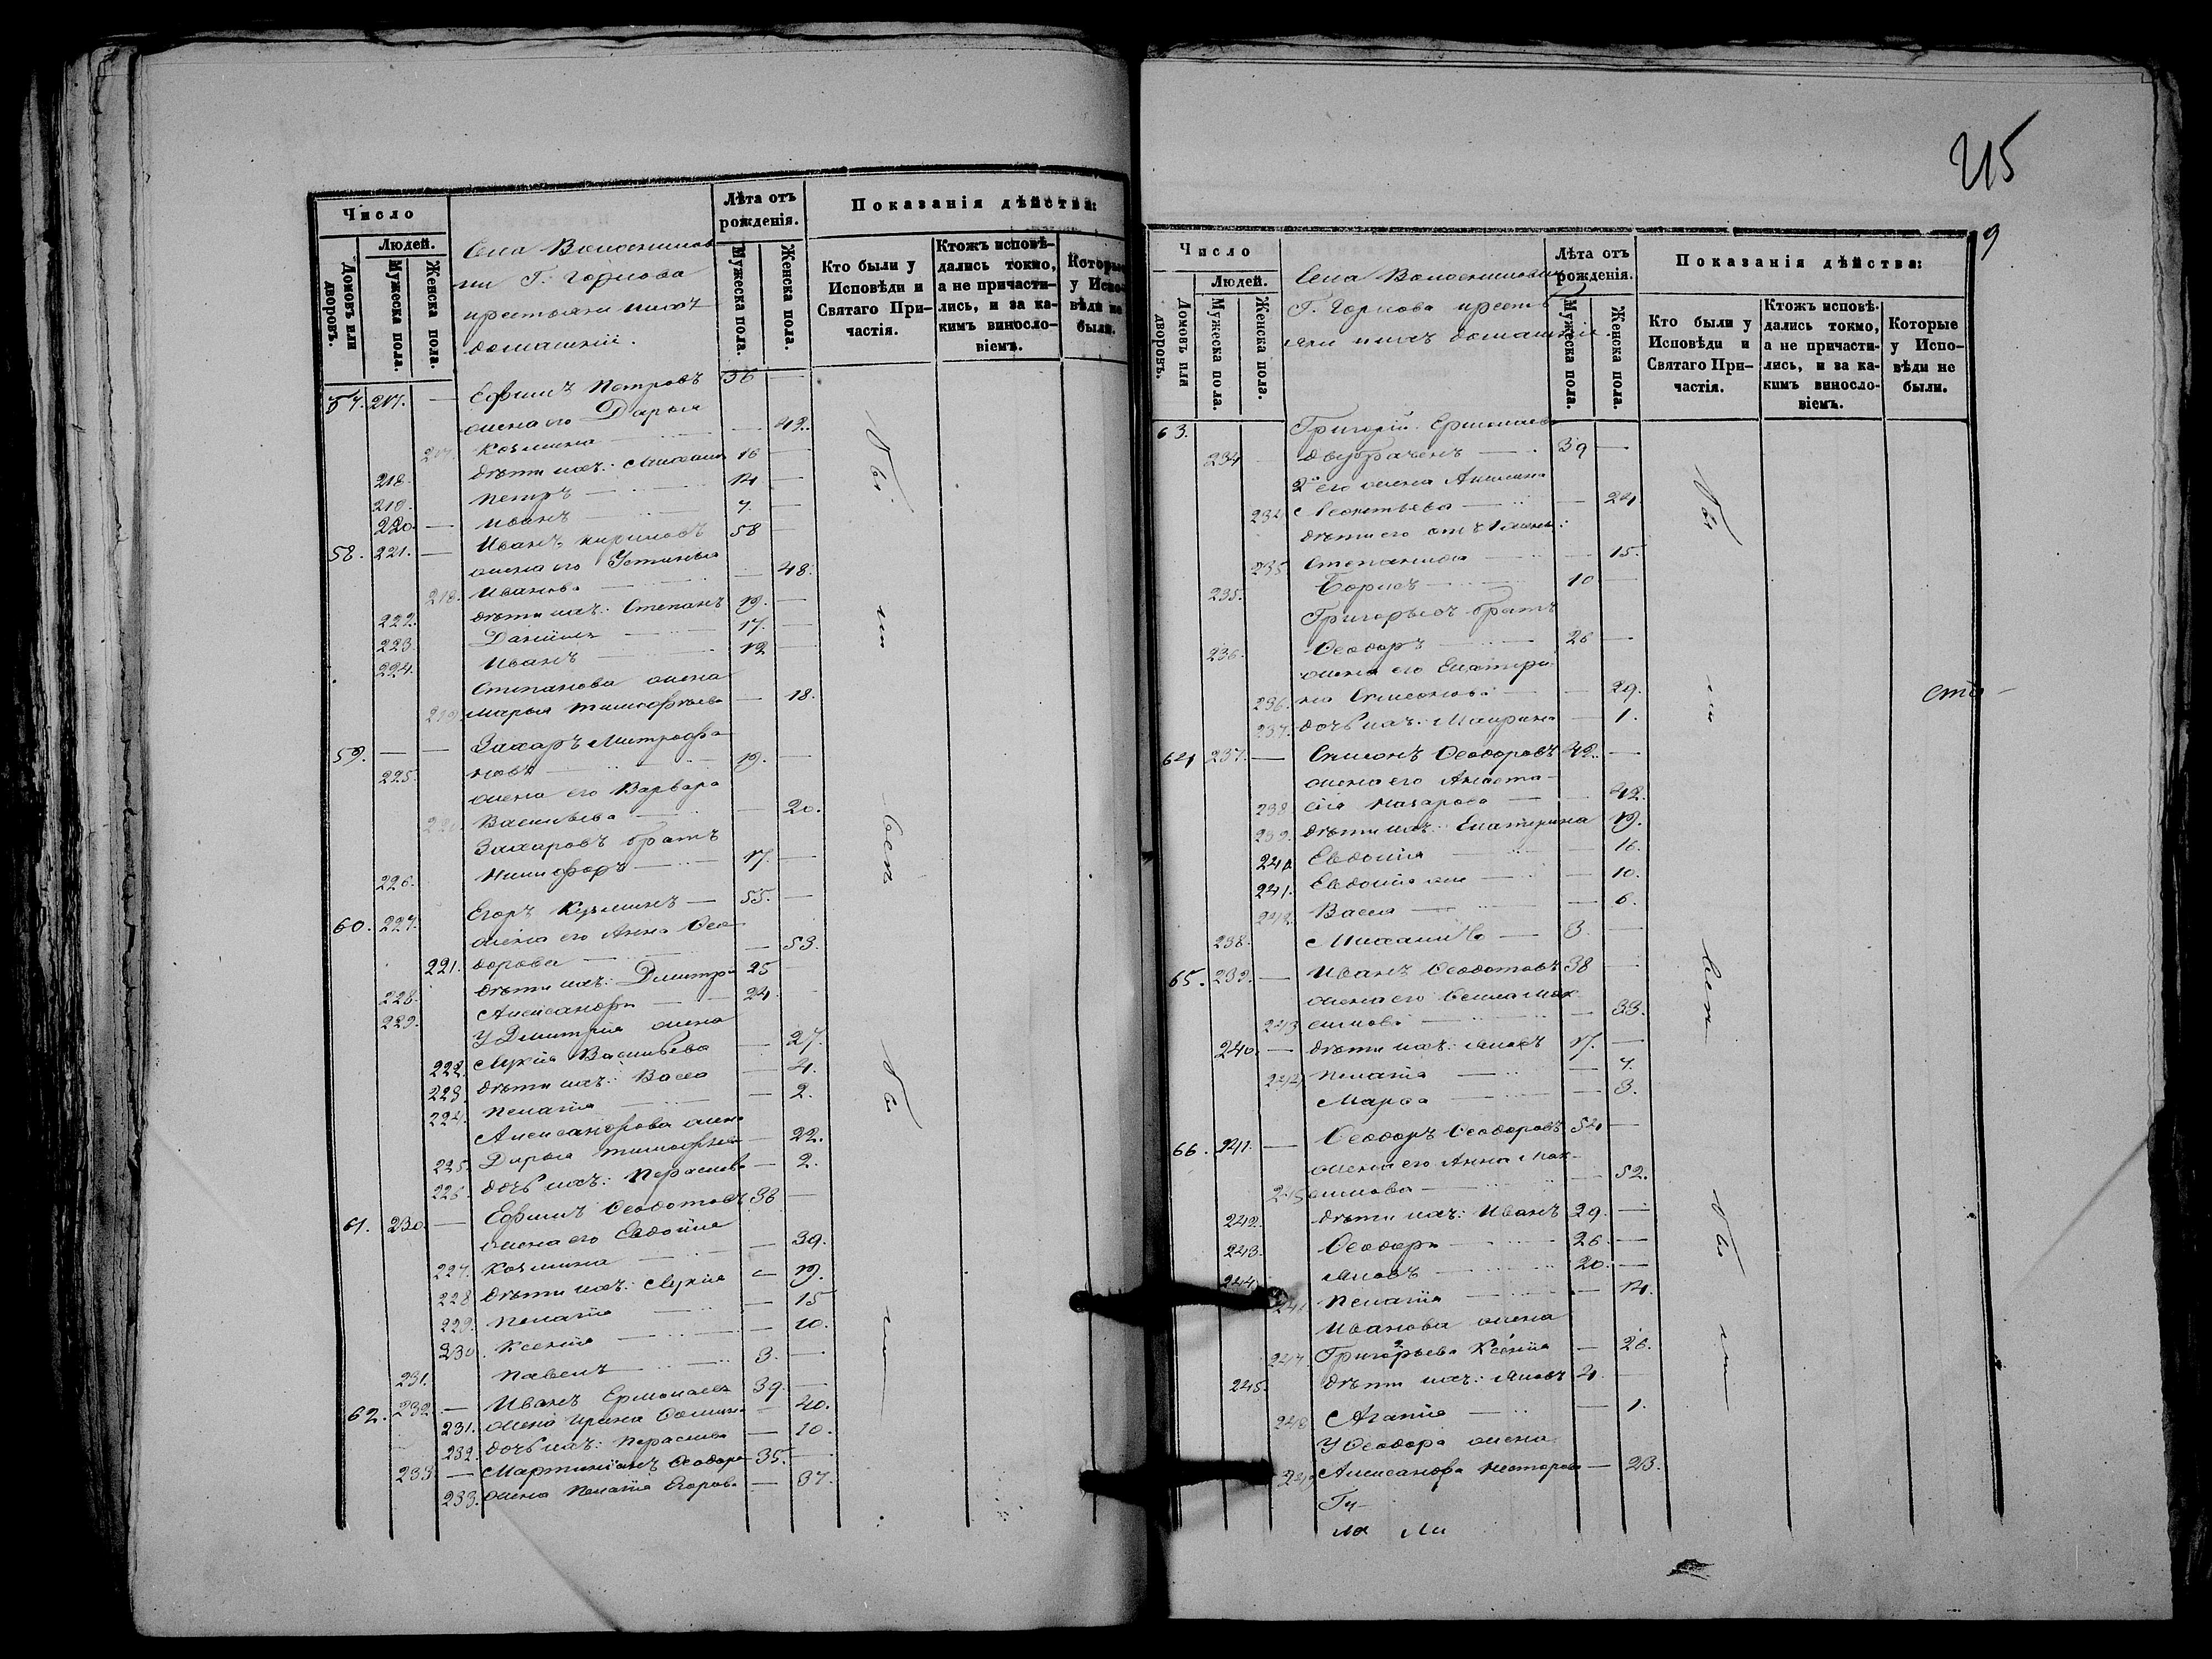 Число
Людей.
Домовъ или дворовъ.
Мужеска пола.
Женска пола.
Села
ни Г. Горлова
крестьяне ихъ
домашніи.
Лѣта отъ рожденія.
Мужеска пола.
Женска пола.
Показанія дѣйства:
Кто были у Исповѣди и Святаго Причастія.
Ктожъ исповѣдались токмо, а не причастились, и за какимъ винословіемъ.
Которые у Исповѣди не были.
57. 217. — Ефимъ Петровъ 36 —
жена его Дарья
217. Козьмина — 42.
218. дѣти ихъ: Михаилъ 16 —
219. Петръ 14 —
220. — Иванъ 7. —
58. 221. — Иванъ Кириловъ 58 —
жена его Устинья
218. Иванова — 48.
222. дѣти ихъ: Степанъ 19. —
223. Даніилъ 17. —
224. Иванъ 12 —
Степанова жена
219. Марья Тимофѣева — 18.
59. — — Захаръ Митрофа-
225. новъ 19. —
жена его Варвара
220. Васильева — 20.
Захаровъ братъ
226. Никифоръ 17. —
60. 227. Егоръ Кузьминъ — 55. —
жена его Анна Ѳео-
221. дорова — 53.
228. дѣти ихъ: Дмитрі 25 —
229. Александръ 24 —
У Дмитрія жена
222. Лукія Васильева — 27.
223. дѣти ихъ: Васса — 4.
224. Пелагія — 2.
Александрова жена
225. Дарья Тимофѣева — 22.
226. дочь ихъ: Параскева — 2.
61. 230. — Ефимъ Ѳеодотовъ 36 —
жена его Евдокія
227. Козьмина — 39.
228 дѣти ихъ: Лукія — 19.
229. Пелагія — 15
230. Ксенія — 10.
231. Павелъ 3. —
62. 232. — Иванъ Ермолаевъ 39. —
231. жена Ирина — 40.
232. дочь ихъ: Параскева — 10.
233 — Мартиніанъ Ѳеодоро 35. —
233. жена Пелагія Егорова — 37.
Бы
ли
всѣ
Бы
ли
215
9
Число
Людей.
Домовъ или дворовъ.
Мужеска пола.
Женска пола.
Села
Г. Горлова кресть
яне ихъ домашніи.
Лѣта отъ рожденія.
Мужеска пола.
Женска пола.
Показанія дѣйства:
Кто были у Исповѣди и Святаго Причастія.
Ктожъ исповѣдались токмо, а не причастились, и за какимъ винословіемъ.
Которые у Исповѣди не были.
63. Григорій Ермолаевъ
234 двубраченъ 39 —
2я его жена Акилина
234 Леонтьева — 24.
дѣти его отъ 1 жены:
235 Степанида — 15.
235. Борисъ 10 —
Григорьевъ братъ
236. Ѳеодоръ 26 —
жена его Екатери
236. на Симеонова — 29.
237. дочь ихъ: Маврина — 1.
64 237. — Симеонъ Ѳеодоровъ 42. —
жена его Анаста-
238 сія Назарова — 42.
239. дѣти ихъ: Екатерина 19.
240 Евдокія — 16.
241. Евдокія же — 10.
242. Васса — 6.
238. Михаилъ 3. —
65. 239. — Иванъ Ѳеодотовъ 38 —
жена его Мак-
243 симова — 33.
240. — дѣти ихъ: Іаковъ 17. —
244 Пелагія — 7.
Марѳа — 3.
66. 241. — Ѳеодоръ Ѳеодоровъ 54 —
жена его Анна Мак-
245 симова — 52.
242. дѣти ихъ: Иванъ 29. —
243. Ѳеодоръ 26. —
244 Іаковъ 20. —
246 Пелагія — 14.
Иванова жена
247. Григорьева Ксенія — 26.
245. дѣти ихъ: Іаковъ 4. —
248 Агапія — 1.
У Ѳеодора жена
249 Александра Нестерова — 23.
Бы
ли
всѣ
Бы
ли